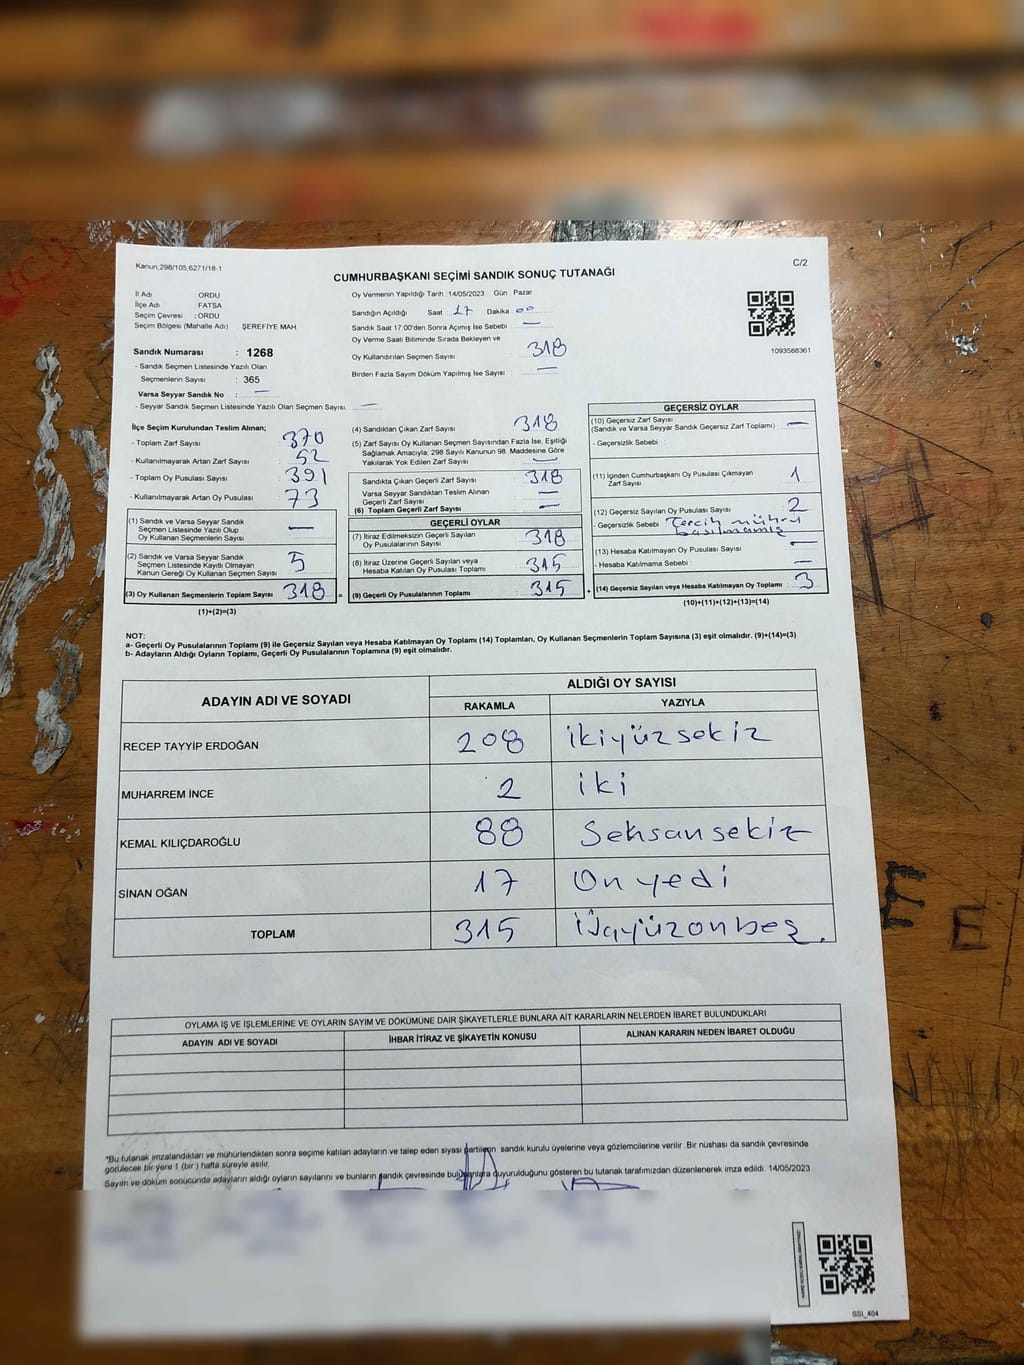 Kanun,298/105,6271/18-1
C/2
CUMHURBAŞKANI SEÇİMİ SANDIK SONUÇ TUTANAĞI
İl Adı ORDU
İlçe Adı : FATSA
Seçim Çevresi : ORDU
Seçim Bölgesi (Mahalle Adı) ŞEREFİYE MAH
Oy Vermenin Yapıldığı Tarih :14/05/2023 Gün : Pazar
Sandığın Açıldığı Saat : 17 Dakika : 00
Sandık Saat 17:00'den Sonra Açımış İse Sebebi : —
Oy Verme Saati Bitiminde Sırada Bekleyen ve
Oy Kullandırılan Seçmen Sayısı : 318
Birden Fazla Sayım Döküm Yapılmış İse Sayısı : —
1093588361
Sandık Numarası : 1268
- Sandık Seçmen Listesinde Yazılı Olan
Seçmenlerin Sayısı : 365
Varsa Seyyar Sandık No : —
- Seyyar Sandık Seçmen Listesinde Yazılı Olan Seçmen Sayısı: —
İlçe Seçim Kurulundan Teslim Alınan;
- Toplam Zarf Sayısı : 370
- Kullanılmayarak Artan Zarf Sayısı : 52
- Toplam Oy Pusulası Sayısı : 391
- Kullanılmayarak Artan Oy Pusulası : 73
(1) Sandık ve Varsa Seyyar Sandık
Seçmen Listesinde Yazılı Olup
Oy Kullanan Seçmenlerin Sayısı : —
(2) Sandık ve Varsa Seyyar Sandık
Seçmen Listesinde Kayıtlı Olmayan
Kanun Gereği Oy Kullanan Seçmen Sayısı : 5
(3) Oy Kullanan Seçmenlerin Toplam Sayısı : 318 =
(1)+(2)=(3)
(4) Sandıktan Çıkan Zarf Sayısı : 318
(5) Zarf Sayısı Oy Kullanan Seçmen Sayısından Fazla İse, Eşitliği
Sağlamak Amacıyla, 298 Sayılı Kanunun 98. Maddesine Göre
Yakılarak Yok Edilen Zarf Sayısı : —
Sandıkta Çıkan Geçerli Zarf Sayısı : 318
Varsa Seyyar Sandıktan Teslim Alınan
Geçerli Zarf Sayısı : —
(6) Toplam Geçerli Zarf Sayısı : —
GEÇERLİ OYLAR
(7) İtiraz Edilmeksizin Geçerli Sayılan
Oy Pusulalarının Sayısı : 318
(8) İtiraz Üzerine Geçerli Sayılan veya
Hesaba Katılan Oy Pusulası Toplamı : 315
(9) Geçerli Oy Pusulalarının Toplamı : 315 +
GEÇERSİZ OYLAR
(10) Geçersiz Zarf Sayısı
(Sandık ve Varsa Seyyar Sandık Geçersiz Zarf Toplamı) : —
- Geçersizlik Sebebi :
(11) İçinden Cumhurbaşkanı Oy Pusulası Çıkmayan
Zarf Sayısı : 1
(12) Geçersiz Sayılan Oy Pusulası Sayısı : 2
- Geçersizlik Sebebi : Tercih mührü
basılmamış
(13) Hesaba Katılmayan Oy Pusulası Sayısı : —
- Hesaba Katılmama Sebebi : —
(14) Geçersiz Sayılan veya Hesaba Katılmayan Oy Toplamı : 3
(10)+(11)+(12)+(13)=(14)
NOT:
a- Geçerli Oy Pusulalarının Toplamı (9) ile Geçersiz Sayılan veya Hesaba Katılmayan Oy Toplamı (14) Toplamları, Oy Kullanan Seçmenlerin Toplam Sayısına (3) eşit olmalıdır. (9)+(14)=(3)
b- Adayların Aldığı Oyların Toplamı, Geçerli Oy Pusulalarının Toplamına (9) eşit olmalıdır.
ADAYIN ADI VE SOYADI ALDIĞI OY SAYISI
RAKAMLA YAZIYLA
RECEP TAYYİP ERDOĞAN 208 ikiyüzsekiz
MUHARREM İNCE 2 iki
KEMAL KILIÇDAROĞLU 88 Seksansekiz
SİNAN OĞAN 17 Onyedi
TOPLAM 315 üçyüzonbeş.
OYLAMA İŞ VE İŞLEMLERİNE VE OYLARIN SAYIM VE DÖKÜMÜNE DAİR ŞİKAYETLERLE BUNLARA AİT KARARLARIN NELERDEN İBARET BULUNDUKLARI
ADAYIN ADI VE SOYADI İHBAR İTİRAZ VE ŞİKAYETİN KONUSU ALINAN KARARIN NEDEN İBARET OLDUĞU
*Bu tutanak imzalandıktan ve mühürlendikten sonra seçime katılan adayların ve talep eden siyasi partilerin sandık kurulu üyelerine veya gözlemcilerine verilir. Bir nüshası da sandık çevresinde
görülecek bir yere 1 (bir) hafta süreyle asılır.
Sayım ve döküm sonucunda adayların aldığı oyların sayılarını ve bunların sandık çevresinde bulunanlara duyurulduğunu gösteren bu tutanak tarafımızdan düzenlenerek imza edildi. 14/05/2023
SSI_404